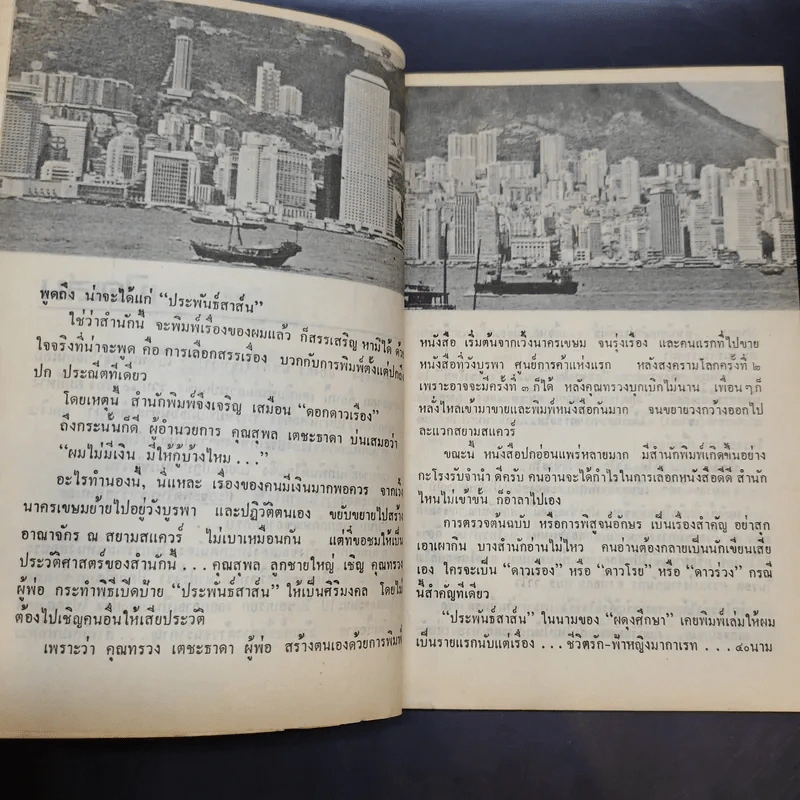 พูดถึง น่าจะได้แก่ “ประพันธ์สาส์น”
ใช่ว่าสำนักนี้ จะพิมพ์เรื่องของผมแล้ว ก็สรรเสริญ หามิได้ ด้วย
ใจจริงที่น่าจะพูด คือ การเลือกสรรเรื่อง บวกกับการพิมพ์ตั้งแต่ปกถึง
ปก ประณีตทีเดียว
โดยเหตุนี้ สำนักพิมพ์จึงเจริญ เสมือน “ดอกดาวเรือง”
ถึงกระนั้นก็ดี ผู้อำนวยการ คุณสุพล เตชะธาดา บ่นเสมอว่า
“ผมไม่มีเงิน มีให้กู้บ้างไหม . . .”
อะไรทำนองนี้, นี่แหละ เรื่องของคนมีเงินมากพอควร จากเวิ้ง
นาครเขษมย้ายไปอยู่วังบูรพา และปฏิวัติตนเอง ขยับขยายไปสร้าง
อาณาจักร ณ สยามสแควร์ ไม่เบาเหมือนกัน แต่ที่ขอชมให้เป็น
ประวัติศาสตร์ของสำนักนี้ . . . คุณสุพล ลูกชายใหญ่ เชิญ คุณทรวง
ผู้พ่อ กระทำพิธีเปิดป้าย “ประพันธ์สาส์น” ให้เป็นศิริมงคล โดยไม่
ต้องไปเชิญคนอื่นให้เสียประวัติ
เพราะว่า คุณทรวง เตชะธาดา ผู้พ่อ สร้างตนเองด้วยการพิมพ์
หนังสือ เริ่มต้นจากเวิ้งนาครเขษม จนรุ่งเรือง และคนแรกที่ไปขาย
หนังสือที่วังบูรพา ศูนย์การค้าแห่งแรก หลังสงครามโลกครั้งที่ ๒
เพราะอาจจะมีครั้งที่ ๓ ก็ได้ หลังคุณทรวงบุกเบิกไม่นาน เพื่อน ๆ ก็
หลั่งไหลเข้ามาขายและพิมพ์หนังสือกันมาก จนขยายวงกว้างออกไป
ละแวกสยามสแควร์
ขณะนี้ หนังสือปกอ่อนแพร่หลายมาก มีสำนักพิมพ์เกิดขึ้นอย่าง
กะโรงรับจำนำ ดีครับ คนอ่านจะได้กำไรในการเลือกหนังสือดีดี สำนัก
ไหนไม่เข้าขั้น ก็อำลาไปเอง
การตรวจต้นฉบับ หรือการพิสูจน์อักษร เป็นเรื่องสำคัญ อย่าสุก
เอาเผากิน บางสำนักอ่านไม่ไหว คนอ่านต้องกลายเป็นนักเขียนเสีย
เอง ใครจะเป็น “ดาวเรือง” หรือ “ดาวโรย” หรือ “ดาวร่วง” กรณี
นี้สำคัญทีเดียว
“ประพันธ์สาส์น” ในนามของ “ผดุงศึกษา” เคยพิมพ์เล่มให้ผม
เป็นรายแรกนับแต่เรื่อง . . . ชีวิตรัก-ฟ้าหญิงมากาเรท . . . ๔๐นาม